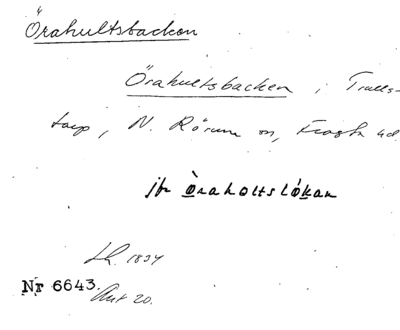 Örahultsbacken
Örahultsbacken i Trulls-
torp, N. Rörum sn, Frosta hd.
jfr Öraholtslókan
Lh. 1834
Nr 6643.
Akt 20.